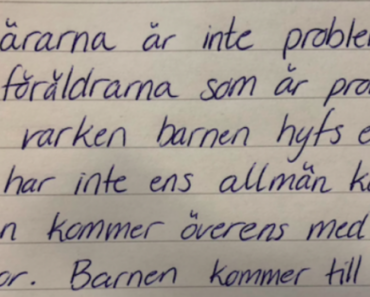 ärarna är inte proble
föräldrarna som är pro
varken barnen hyfs e
har inte ens allmän k
n kommer överens med
or. Barnen kommer till